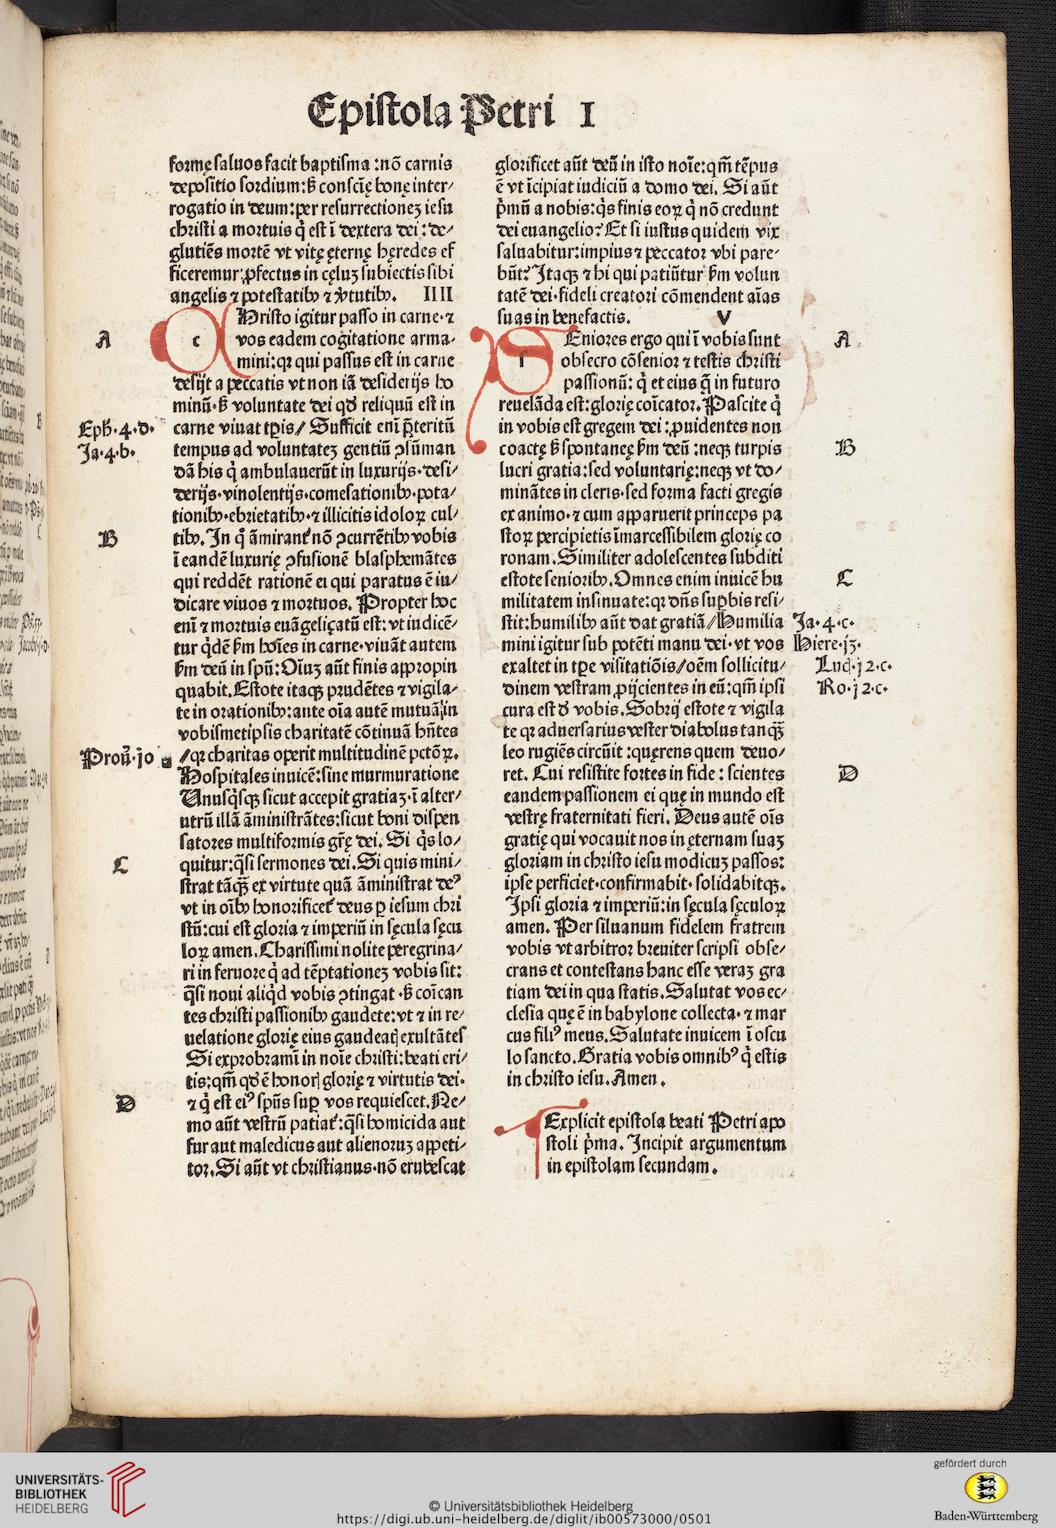 Epistola Petri I
formę saluos facit baptisma :nō carnis
depositio sordium:ß consciē bonę inter/
rogatio in deum:per resurrectioneʒ iesu
christi a mortuis q̇ est ī dextera dei : de/
glutiēs mortē vt vitę ęternę hęredes ef
ficeremur:ꝓfectus in cęluʒ subiectis sibi
angelis ⁊ potestatibꝰ ⁊ v̇tutibꝰ. IIII
A
c
Hristo igitur passo in carne·⁊
vos eadem cogitatione arma-
mini:qꝛ qui passus est in carne
desijt a peccatis vt non iā desiderijs ho
minū·ß voluntate dei qð reliquū est in
Eph·4·d·
carne viuat tꝑis/ Sufficit enī p̄teritū
Ja·4·b·
tempus ad voluntateʒ gentiū ꝯsūman
dā his q̇ ambulauerūt in luxurijs·desi/
derijs·vinolentijs·comesationibꝰ·pota/
tionibꝰ·ebrietatibꝰ·⁊ illicitis idoloꝝ cul/
B
tibꝰ. In q̇ āmirant᷑ nō ꝯcurrētibꝰ vobis
ī eandē luxurię ꝯfusionē blasphemātes
qui reddēt rationē ei qui paratus ē iu/
dicare viuos ⁊ mortuos. Propter hoc
enī ⁊ mortuis euāgeliçatū est: vt iudicē/
tur q̇dē ẜm hoīes in carne·viuāt autem
ẜm deū in spū: Oīuʒ aūt finis appropin
quabit. Estote itaqꝫ prudētes ⁊ vigila/
te in orationibꝰ:ante oīa autē mutuā in
vobismetipsis charitatē cōtinuā hn̄tes
Prou̇·jo
/qꝛ charitas operit multitudinē pctōꝝ.
Hospitales inuicē:sine murmuratione
Unusq̇sqꝫ sicut accepit gratiaʒ·ī alter/
utrū illā āministrātes:sicut boni dispen
satores multiformis gr̄ę dei. Si q̇s lo/
C
quitur:q̄si sermones dei. Si quis mini/
strat tāqꝫ ex virtute quā āministrat deꝰ
vt in oībꝰ honorificet᷑ deus ꝑ iesum chri
stū:cui est gloria ⁊ imperiū in sęcula sęcu
loꝝ amen. Charissimi nolite peregrina/
ri in feruore q̇ ad tēptationeʒ vobis sit:
q̄si noui aliq̇d vobis ꝯtingat ·ß coīcan
tes christi passionibꝰ gaudete:vt ⁊ in re/
uelatione glorię eius gaudeat᷑ exultātes
Si exprobramī in noīe christi:beati eri/
tis:qm̄ qð ē honor glorię ⁊ virtutis dei·
D
⁊ q̇ est eiꝰ spūs suꝑ vos requiescet. Ne/
mo aūt vestrū patiat᷑:q̄si homicida aut
fur aut maledicus aut alienoruʒ appeti/
tor. Si aūt vt christianus·nō erubescat
glorificet aūt deū in isto noīe:qm̄ tēpus
ē vt īcipiat iudiciū a domo dei. Si aūt
p̄mū a nobis:q̇s finis eoꝝ q̇ nō credunt
dei euangelio? Et si iustus quidem vix
saluabitur:impius ⁊ peccator vbi pare/
būt? Itaqꝫ ⁊ hi qui patiūtur ẜm volun
tatē dei·fideli creatori cōmendent aīas
suas in benefactis. V
s
Eniores ergo qui ī vobis sunt
A
obsecro cōsenior ⁊ testis christi
passionū: q̇ et eius q̄ in futuro
reuelāda est:glorię coīcator. Pascite q̇
in vobis est gregem dei :ꝓuidentes non
B
coactę ß spontaneę ẜm deū :neqꝫ turpis
lucri gratia:sed voluntarię:neqꝫ vt do/
minātes in cleris·sed forma facti gregis
ex animo·⁊ cum apparuerit princeps pa
stoꝝ percipietis īmarcessibilem glorię co
ronam. Similiter adolescentes subditi
C
estote senioribꝰ. Omnes enim inuicē hu
militatem insinuate:qꝛ dn̄s suꝑbis resi/
stit:humilibꝰ aūt dat gratiā/ Humilia
Ja·4·c·
mini igitur sub potēti manu dei·vt vos
Hiere·jʒ·
exaltet in tꝑe visitatiōis/oēm sollicitu/
Lud·j2·c·
dinem vestram ꝓijcientes in eū:qm̄ ipsi
Ro·j2·c·
cura est ð vobis. Sobrij estote ⁊ vigila
te qꝛ aduersarius vester diabolus tanqꝫ
leo rugiēs circūit :quęrens quem deuo/
D
ret. Cui resistite fortes in fide : scientes
eandem passionem ei quę in mundo est
vestrę fraternitati fieri. Deus autē oīs
gratię qui vocauit nos in ęternam suaʒ
gloriam in christo iesu modicuʒ passos:
ipse perficiet·confirmabit· solidabitqꝫ.
Ipsi gloria ⁊ imperiū:in sęcula sęculoꝝ
amen. Per siluanum fidelem fratrem
vobis vt arbitror breuiter scripsi obse/
crans et contestans hanc esse veraʒ gra
tiam dei in qua statis. Salutat vos ec/
clesia quę ē in babylone collecta· ⁊ mar
cus filiꝰ meus. Salutate inuicem ī oscu
lo sancto. Gratia vobis omnibꝰ q̇ estis
in christo iesu. Amen.
Explicit epistola beati Petri apo
stoli p̄ma. Incipit argumentum
in epistolam secundam.
UNIVERSITÄTS-
BIBLIOTHEK
HEIDELBERG
© Universitätsbibliothek Heidelberg
https://digi.ub.uni-heidelberg.de/diglit/ib00573000/0501
gefördert durch
Baden-Württemberg